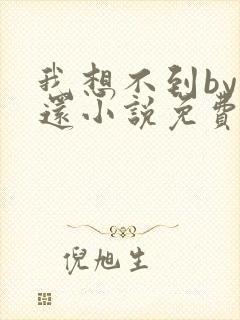 我想不到by
還小說免費
倪旭生